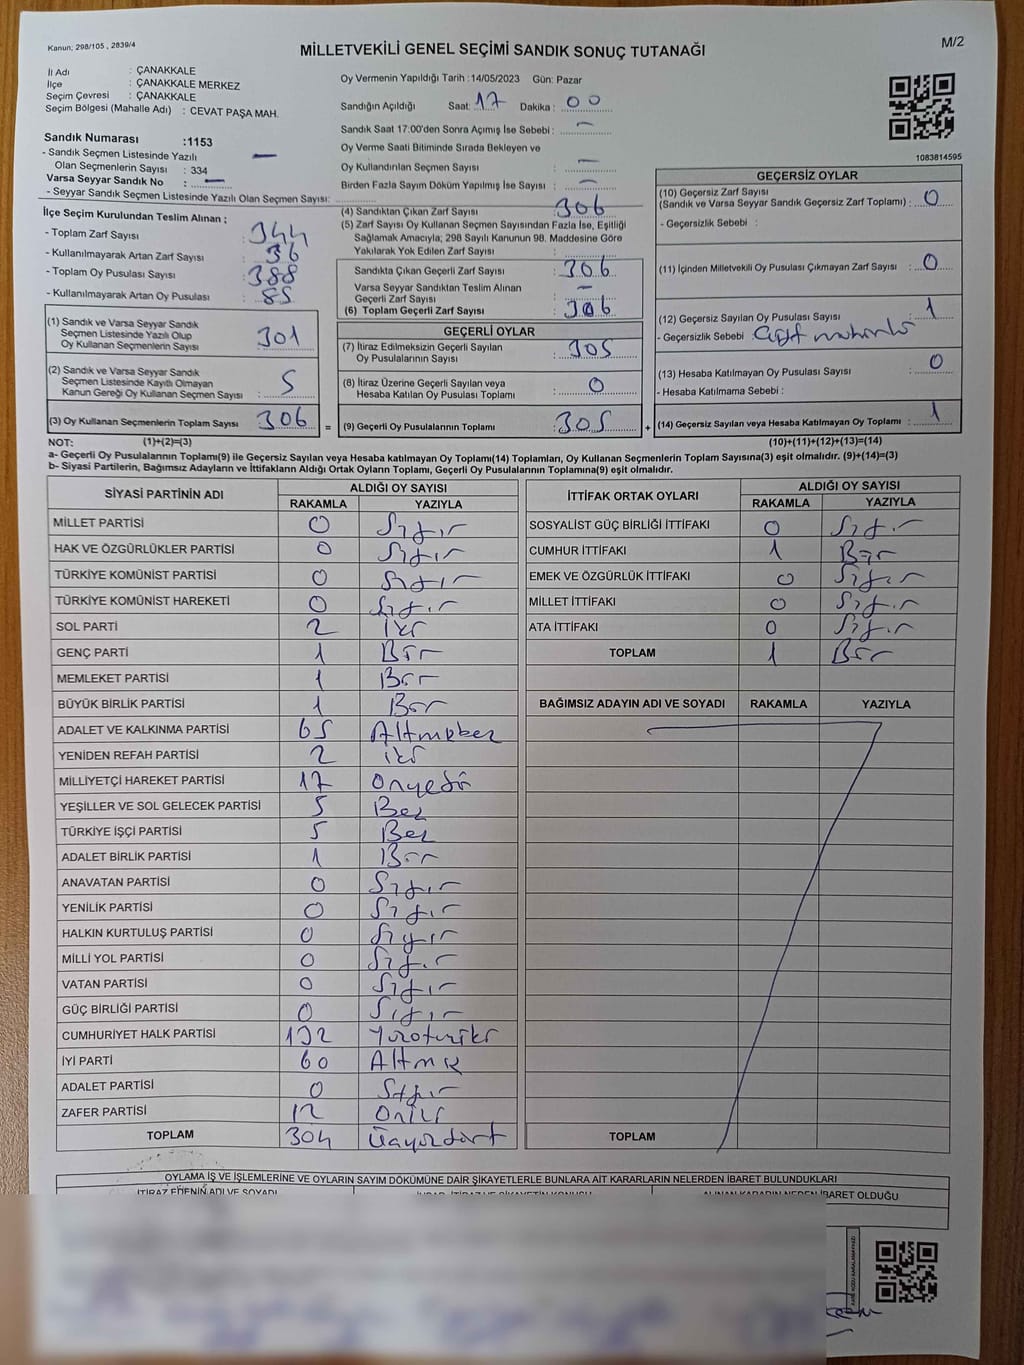 Kanun; 298/105 , 2839/4
MİLLETVEKİLİ GENEL SEÇİMİ SANDIK SONUÇ TUTANAĞI
M/2
İl Adı : ÇANAKKALE
İlçe : ÇANAKKALE MERKEZ
Seçim Çevresi : ÇANAKKALE
Seçim Bölgesi (Mahalle Adı) : CEVAT PAŞA MAH.
Sandık Numarası :1153
- Sandık Seçmen Listesinde Yazılı
Olan Seçmenlerin Sayısı : 334
Varsa Seyyar Sandık No : —
- Seyyar Sandık Seçmen Listesinde Yazılı Olan Seçmen Sayısı:
İlçe Seçim Kurulundan Teslim Alınan ;
- Toplam Zarf Sayısı : 344
- Kullanılmayarak Artan Zarf Sayısı : 36
- Toplam Oy Pusulası Sayısı : 388
- Kullanılmayarak Artan Oy Pusulası : 85
(1) Sandık ve Varsa Seyyar Sandık
Seçmen Listesinde Yazılı Olup
Oy Kullanan Seçmenlerin Sayısı : 301
(2) Sandık ve Varsa Seyyar Sandık
Seçmen Listesinde Kayıtlı Olmayan
Kanun Gereği Oy Kullanan Seçmen Sayısı : 5
(3) Oy Kullanan Seçmenlerin Toplam Sayısı : 306
Oy Vermenin Yapıldığı Tarih :14/05/2023 Gün: Pazar
Sandığın Açıldığı Saat: 17 Dakika : 00
Sandık Saat 17:00'den Sonra Açımış İse Sebebi : —
Oy Verme Saati Bitiminde Sırada Bekleyen ve
Oy Kullandırılan Seçmen Sayısı : —
Birden Fazla Sayım Döküm Yapılmış İse Sayısı : —
(4) Sandıktan Çıkan Zarf Sayısı : 306
(5) Zarf Sayısı Oy Kullanan Seçmen Sayısından Fazla İse, Eşitliği
Sağlamak Amacıyla; 298 Sayılı Kanunun 98. Maddesine Göre
Yakılarak Yok Edilen Zarf Sayısı :
Sandıkta Çıkan Geçerli Zarf Sayısı : 306
Varsa Seyyar Sandıktan Teslim Alınan
Geçerli Zarf Sayısı : —
(6) Toplam Geçerli Zarf Sayısı : 306
GEÇERLİ OYLAR
(7) İtiraz Edilmeksizin Geçerli Sayılan
Oy Pusulalarının Sayısı : 305
(8) İtiraz Üzerine Geçerli Sayılan veya
Hesaba Katılan Oy Pusulası Toplamı : 0
= (9) Geçerli Oy Pusulalarının Toplamı : 305
1083814595
GEÇERSİZ OYLAR
(10) Geçersiz Zarf Sayısı
(Sandık ve Varsa Seyyar Sandık Geçersiz Zarf Toplamı) : 0
- Geçersizlik Sebebi :
(11) İçinden Milletvekili Oy Pusulası Çıkmayan Zarf Sayısı : 0
(12) Geçersiz Sayılan Oy Pusulası Sayısı : 1
- Geçersizlik Sebebi :
(13) Hesaba Katılmayan Oy Pusulası Sayısı : 0
- Hesaba Katılmama Sebebi :
+ (14) Geçersiz Sayılan veya Hesaba Katılmayan Oy Toplamı : 1
NOT: (1)+(2)=(3) (10)+(11)+(12)+(13)=(14)
a- Geçerli Oy Pusulasının Toplamı(9) ile Geçersiz Sayılan veya Hesaba katılmayan Oy Toplamı(14) Toplamları, Oy Kullanan Seçmenlerin Toplam Sayısına(3) eşit olmalıdır. (9)+(14)=(3)
b- Siyasi Partilerin, Bağımsız Adayların ve İttifakların Aldığı Ortak Oyların Toplamı, Geçerli Oy Pusulalarının Toplamına(9) eşit olmalıdır.
SİYASİ PARTİNİN ADI ALDIĞI OY SAYISI
RAKAMLA YAZIYLA
MİLLET PARTİSİ 0 Sıfır
HAK VE ÖZGÜRLÜKLER PARTİSİ 0 Sıfır
TÜRKİYE KOMÜNİST PARTİSİ 0 Sıfır
TÜRKİYE KOMÜNİST HAREKETİ 0 Sıfır
SOL PARTİ 2 iki
GENÇ PARTİ 1 Bir
MEMLEKET PARTİSİ 1 Bir
BÜYÜK BİRLİK PARTİSİ 1 Bir
ADALET VE KALKINMA PARTİSİ 65 Altmışbeş
YENİDEN REFAH PARTİSİ 2 iki
MİLLİYETÇİ HAREKET PARTİSİ 17 Onyedi
YEŞİLLER VE SOL GELECEK PARTİSİ 5 Beş
TÜRKİYE İŞÇİ PARTİSİ 5 Beş
ADALET BİRLİK PARTİSİ 1 Bir
ANAVATAN PARTİSİ 0 Sıfır
YENİLİK PARTİSİ 0 Sıfır
HALKIN KURTULUŞ PARTİSİ 0 Sıfır
MİLLİ YOL PARTİSİ 0 Sıfır
VATAN PARTİSİ 0 Sıfır
GÜÇ BİRLİĞİ PARTİSİ 0 Sıfır
CUMHURİYET HALK PARTİSİ 132 Yüzotuziki
İYİ PARTİ 60 Altmış
ADALET PARTİSİ 0 Sıfır
ZAFER PARTİSİ 12 Oniki
TOPLAM 304 Üçyüzdört
İTTİFAK ORTAK OYLARI ALDIĞI OY SAYISI
RAKAMLA YAZIYLA
SOSYALİST GÜÇ BİRLİĞİ İTTİFAKI 0 Sıfır
CUMHUR İTTİFAKI 1 Bir
EMEK VE ÖZGÜRLÜK İTTİFAKI 0 Sıfır
MİLLET İTTİFAKI 0 Sıfır
ATA İTTİFAKI 0 Sıfır
TOPLAM 1 Bir
BAĞIMSIZ ADAYIN ADI VE SOYADI RAKAMLA YAZIYLA
TOPLAM
OYLAMA İŞ VE İŞLEMLERİNE VE OYLARIN SAYIM DÖKÜMÜNE DAİR ŞİKAYETLERLE BUNLARA AİT KARARLARIN NELERDEN İBARET BULUNDUKLARI
İTİRAZ EDENİN ADI VE SOYADI
ALINAN KARARIN NEDEN İBARET OLDUĞU